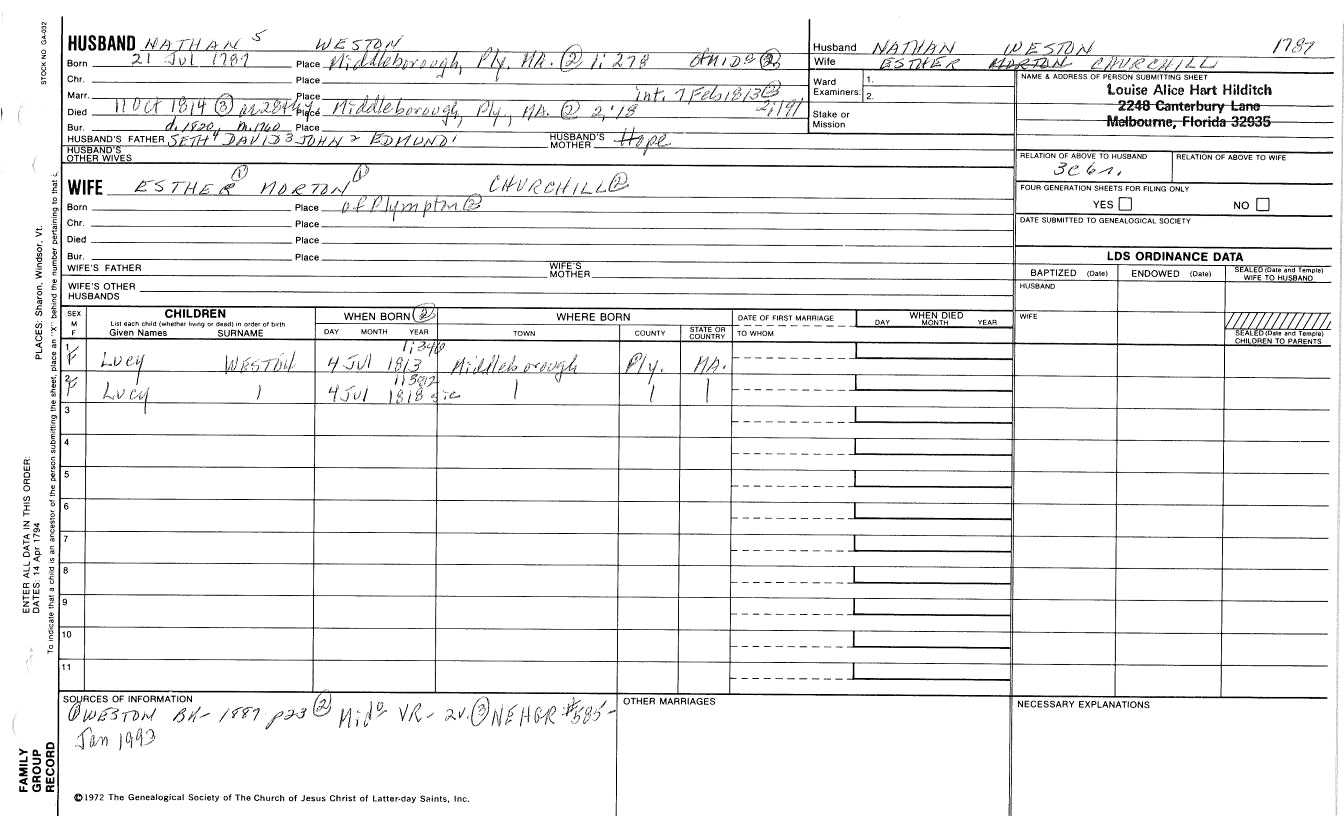 STOCK NO. GA-032
HUSBAND NATHAN 5 WESTON
Born 21 Jul 1787 Place Middleborough, Ply. MA. ② 1:278
Chr. Place
Marr. Place int. 7 Feb 1813 ②
Died 11 Oct 1814 ③ Place Middleborough, Ply, MA. ② 2:18 2:191
Bur. d. 1820, m. 1760 Place
HUSBAND'S FATHER SETH 4 DAVID 3 JOHN 2 EDMUND 1 HUSBAND'S MOTHER Hope
HUSBAND'S OTHER WIVES
WIFE ESTHER ① MORTON ① CHURCHILL ②
Born Place of Plympton ②
Chr. Place
Died Place
Bur. Place
WIFE'S FATHER WIFE'S MOTHER
WIFE'S OTHER HUSBANDS
Husband NATHAN WESTON 1787
Wife ESTHER MORTON CHURCHILL
Ward Examiners: 1. 2.
Stake or Mission
NAME & ADDRESS OF PERSON SUBMITTING SHEET
Louise Alice Hart Hilditch
2248 Canterbury Lane
Melbourne, Florida 32935
RELATION OF ABOVE TO HUSBAND RELATION OF ABOVE TO WIFE
3C6r.
FOUR GENERATION SHEETS FOR FILING ONLY
YES NO
DATE SUBMITTED TO GENEALOGICAL SOCIETY
LDS ORDINANCE DATA
BAPTIZED (Date) ENDOWED (Date) SEALED (Date and Temple) WIFE TO HUSBAND
HUSBAND
WIFE
SEALED (Date and Temple) CHILDREN TO PARENTS
SEX M F CHILDREN WHEN BORN ② WHERE BORN DATE OF FIRST MARRIAGE WHEN DIED
List each child (whether living or dead) in order of birth
Given Names SURNAME DAY MONTH YEAR TOWN COUNTY STATE OR COUNTRY TO WHOM DAY MONTH YEAR
1 F Lucy WESTON 4 Jul 1813 Middleborough Ply. MA.
2 F Lucy 4 Jul 1818 sic
3
4
5
6
7
8
9
10
11
SOURCES OF INFORMATION OTHER MARRIAGES NECESSARY EXPLANATIONS
① WESTON BK- 1887 p23 ② Mido VR- 2v. ③ NEHGR #585-
Jan 1993
©1972 The Genealogical Society of The Church of Jesus Christ of Latter-day Saints, Inc.
PLACES: Sharon, Windsor, Vt.
ENTER ALL DATA IN THIS ORDER:
DATES: 14 Apr 1794
To indicate that a child is an ancestor of the person submitting the sheet, place an "X" behind the number pertaining to that
FAMILY GROUP RECORD